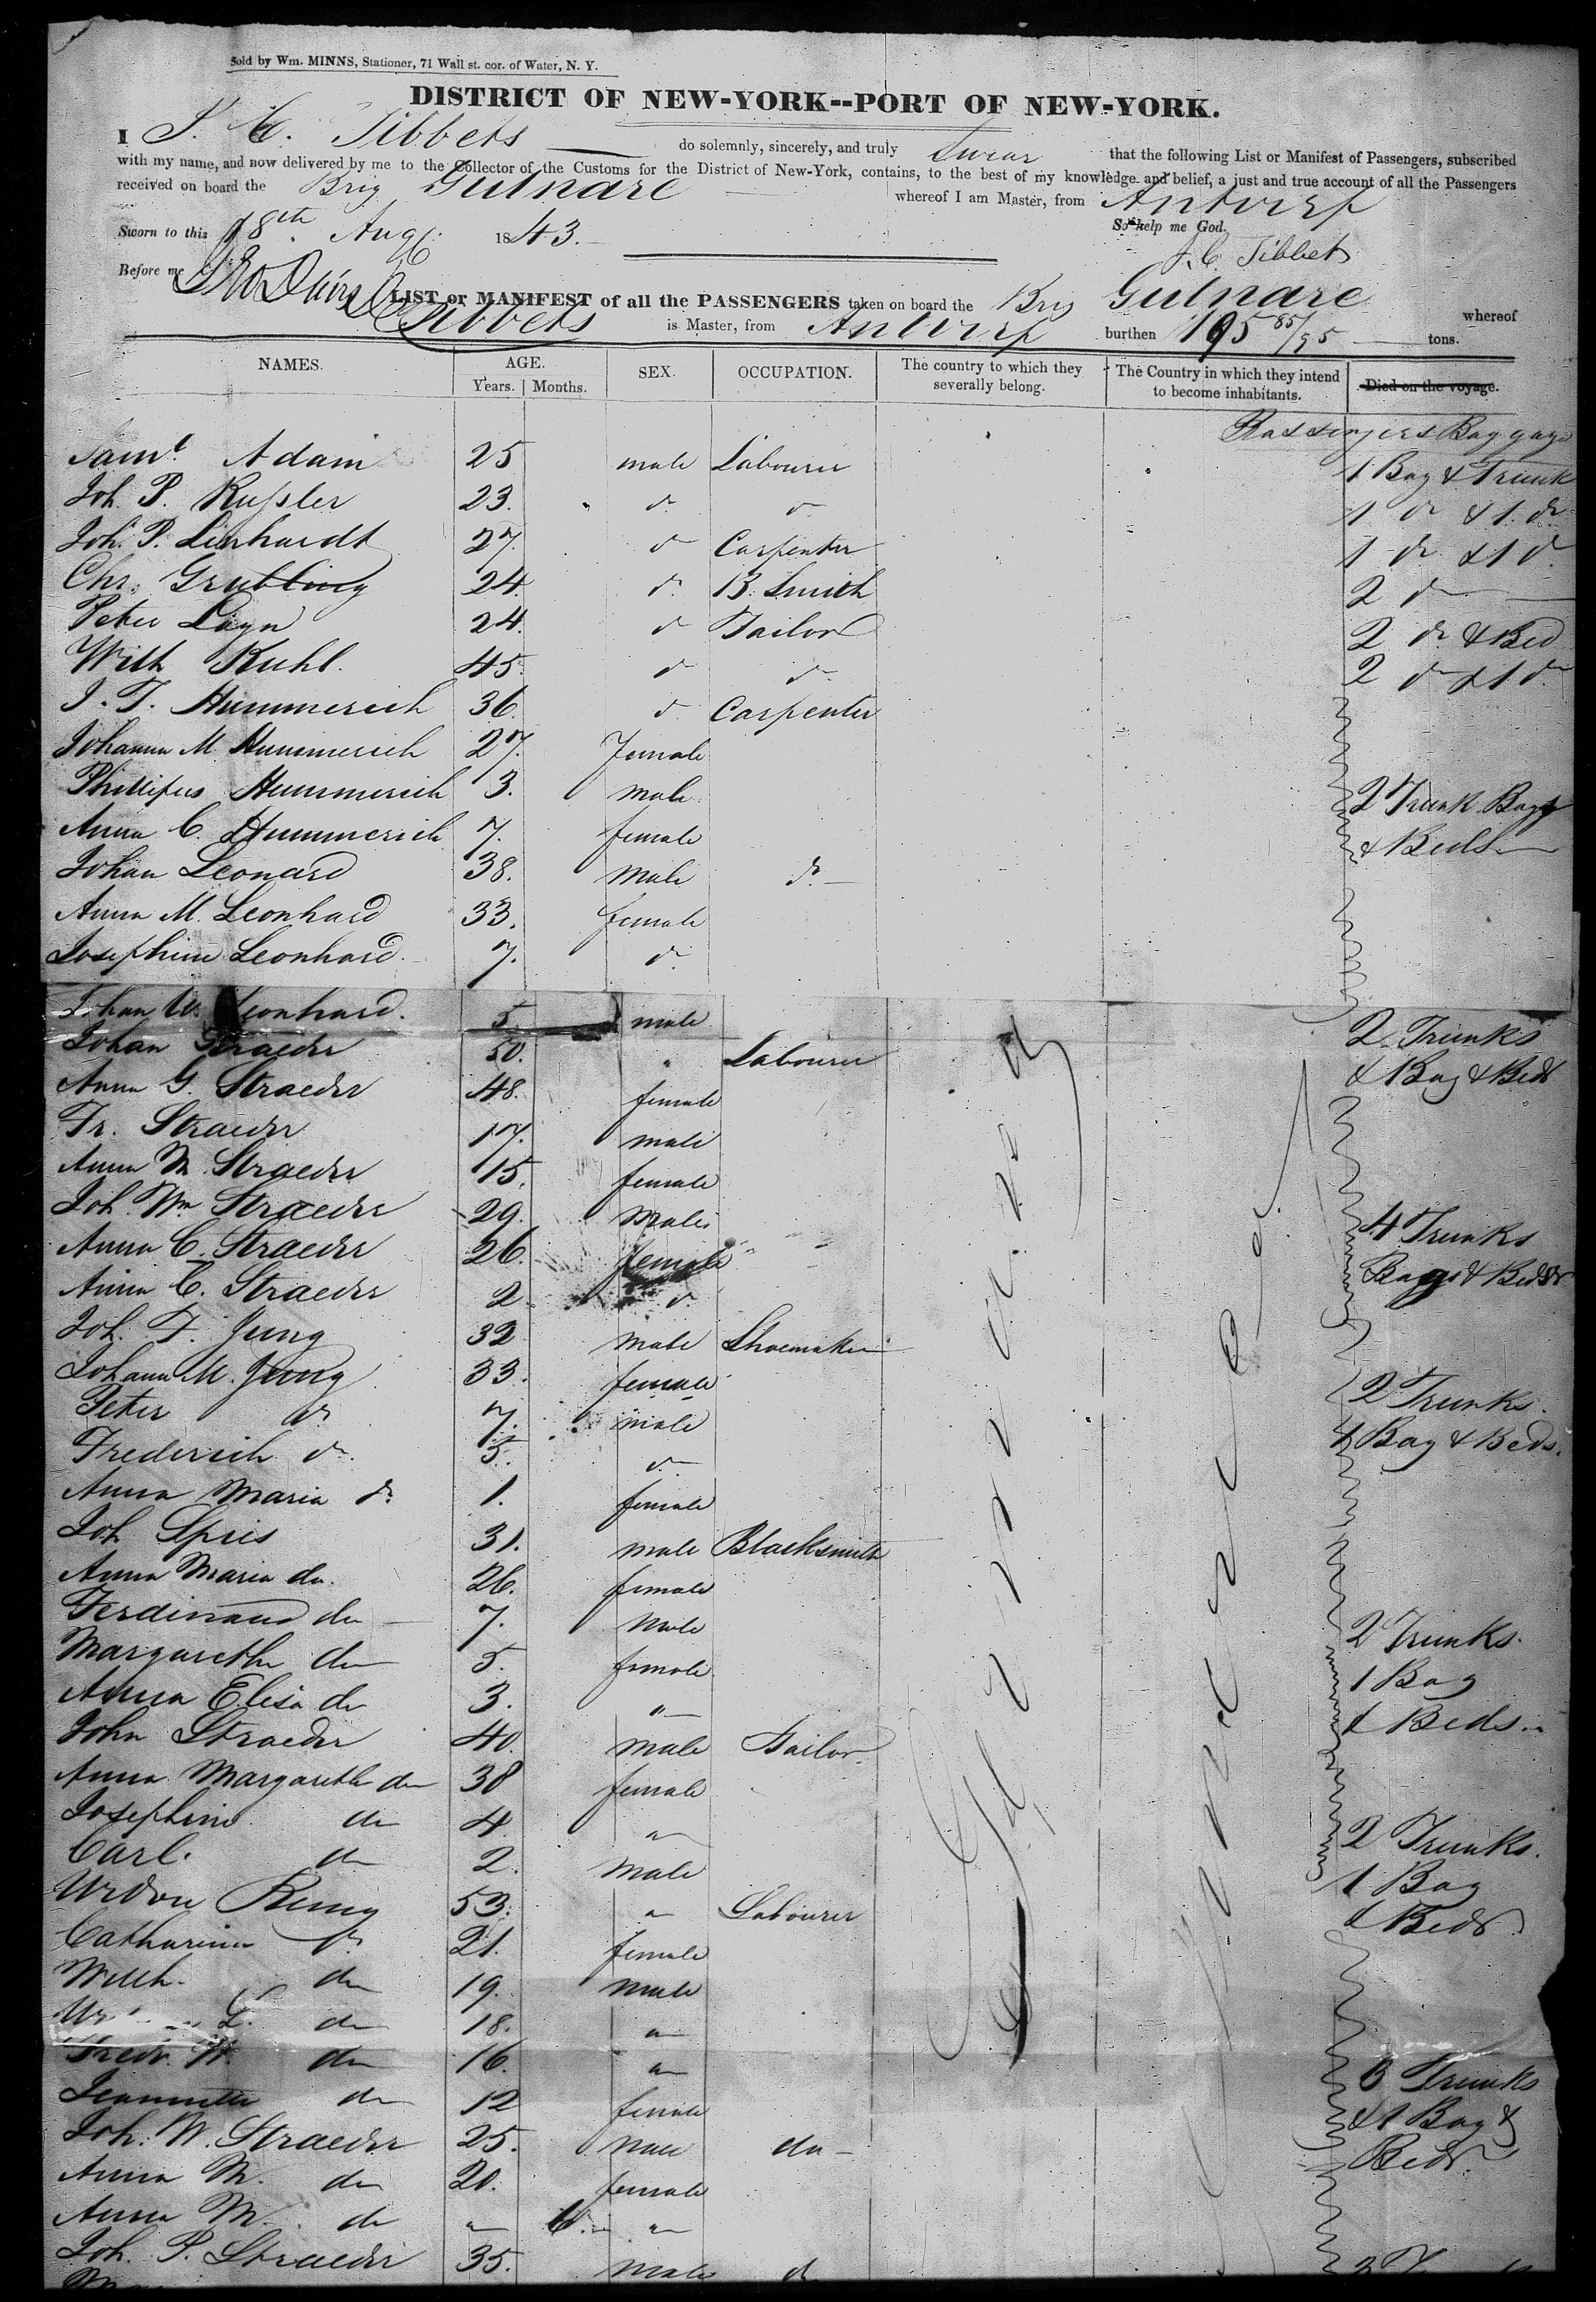 Sold by Wm. MINNS, Stationer, 71 Wall st. cor. of Water, N. Y.
DISTRICT OF NEW-YORK--PORT OF NEW-YORK.
I J. C. Tibbets do solemnly, sincerely, and truly Swear that the following List or Manifest of Passengers, subscribed
with my name, and now delivered by me to the Collector of the Customs for the District of New-York, contains, to the best of my knowledge and belief, a just and true account of all the Passengers
received on board the Brig Gulnare whereof I am Master, from Antwerp
Sworn to this 18th Aug 1843. So help me God.
Before me J. C. Tibbets
LIST or MANIFEST of all the PASSENGERS taken on board the Brig Gulnare whereof
Tibbets is Master, from Antwerp burthen 195 85/95 tons.
NAMES. AGE. SEX. OCCUPATION. The country to which they severally belong. The Country in which they intend to become inhabitants. Died on the voyage.
Years. Months.
Passengers Baggage
Saml. Adam 25 male Labourer 1 Bag & Trunk
Joh. P. Russler 23. do do 1 do & 1 do
Joh. P. Linhardt 27. do Carpenter 1 do & 1 do
Chr. Grubling 24 do B. Smith 2 do
Peter 24. do Tailor 2 do & Bed
Wilh Kuhl. 45. do do 2 do & 1 do
J. T. Hummerich 36. do Carpenter
Johanna M. Hummerich 27. Female
Phillipus Hummerich 3. male 2 Trunk Bags
Anna C. Hummerich 7. female & Beds
Johan Leonard 38. male do
Anna M. Leonhard 33. female
Josephine Leonhard 7. do
Johan W. Leonhard. 5 male 2 Trunks
Johan Straeder 50. " Labourer & 1 Bag & Beds
Anna G. Straeder 48. female
Fr. Straeder 17. male
Anna M. Straeder 15. female
Joh. Wm Straeder 29. Male 4 Trunks
Anna C. Straeder 26. female Bags & Beds
Anna C. Straeder 2 do
Joh. F. Jung 32 male Shoemaker
Johann M. Jung 33. female 2 Trunks.
Peter do 7. male 1 Bag & Beds.
Frederich do 5. do
Anna Maria do 1. female
Joh Spies 31. male Blacksmith
Anna Maria do. 26. female
Ferdinand do 7. Male 2 Trunks.
Margarethe do 5. female 1 Bag
Anna Elisa do 3. " & Beds.
John Straeder 40. male Tailor
Anna Margarethe do 38 female
Josephine do 4 " 2 Trunks.
Carl. do 2. male 1 Bag
Remy 53. " Labourer & Beds
Catharina do 21. female
Wilh. do 19. male
L. do 18. "
Fredr. W. do 16. " 3 Trunks
Jeannette do 12 female & 1 Bag &
Joh. W. Straeder 25. male do Beds.
Anna M. do 20. female
Anna M. do " 6. "
Joh. P. Straeder 35. male do
Germany